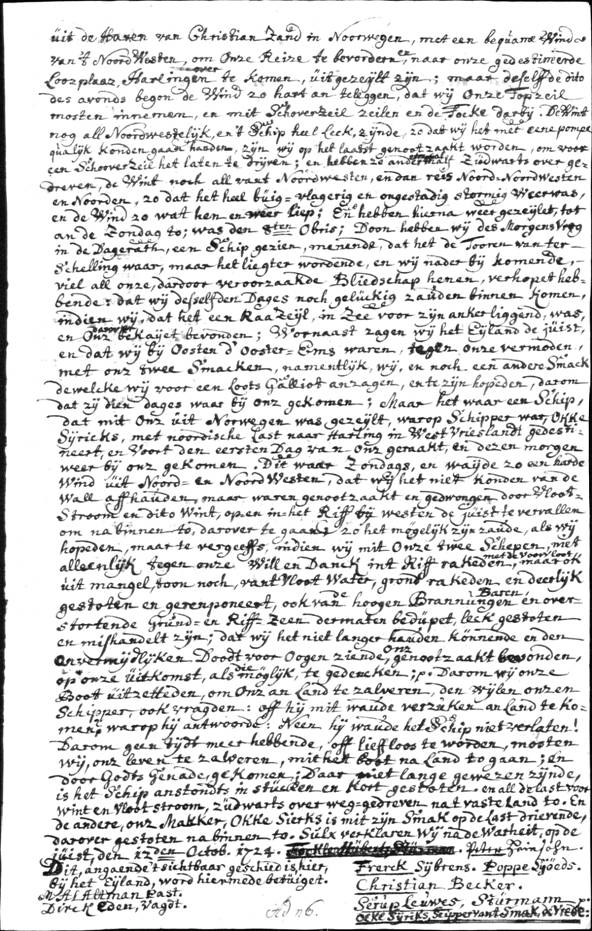 uit de Haven van Christian Zand in Noorwegen, met een bequame Wind
van 't NoordWesten, om Onze Reize te bevorderen, naar onze gedestineerde
Loozplaaz, Harlingen te Komen, uitgezeylt zijn; maar deselfde dito
des avonds begon de Wind zo hart an teleggen, dat wij Onze Topzeil
mosten innemen, en mit Schoverzeil zeilen en de Focke darbij. De Wint
nog all Noordwestelijk, en 't Schip heel Leck, zijnde, zo dat wij het mit eene pompe
qualijk Konden gaan hauden, zijn wij op het laatst genootzaakt worden, om voor
een Schooverzeil het laten te drijven; en hebben zo anderthalff Zudwarts over ge-
dreven, de Wint noch all vant Noordwesten, en dan reis Noord-Noordwesten
en Noorden, zo dat het heel buig-vlagerig en ongestadig stormig Weer was,
en de Wind zo wat hen en weer liep; En hebben hierna weer gezeijlet, tot
an de Zondag to; was den 8sten Obris; Doon hebben wij des Morgens Vroeg
in de Dagerath, een Schip gezien, menende, dat het de Tooren van ter-
Schelling waar, maar het liegter wordende, en wij nader bij Komende,
viel all onze, dardoor veroorzaakde Bliedschap henen, verhopet heb-
bende: dat wij desselfden Dages noch geluckig zauden binnen Komen,
indien wij, dat het een RaaZeijl, in Zee voor zijn anker liggend, was,
en Ons darvoor bekaijet bevonden; Wornaast zagen wij het Eijland de Juist,
en dat wij bij Oosten d'Ooster-Eems waren, tegen onze vermoden,
met onz twee Smacken, namentlijk, wij, en noch een andere Smack
dewelcke wij voor een Loots Galliot anzagen, en te zijn hopeden, darom
dat zij dien dages waar bij onz gekomen; Maar het waar een Schip,
dat mit Onz uit Norwegen was gezeijlt, warop Schipper war, Okke
Sijricks, met noordische Last naar Harling in West Vrieslandt gedesti-
neert, en Voort den eersten Dag van Onz geraakt, en dezen morgen
weer bij onz gekomen. Dit waar Zondags, en waijde zo een harde
Wind uit Noord- en NoordWesten, dat wij het niet Konden van de
Wall affhauden, maar waren genootzaakt en gedwongen door Vloot-
Stroom en dito Wint, op en in het Riff bij westen de Juist te vervallen
om na binnen to, darover te gaan, zo het mogelijk zijn zaude, als wij
hopeden, maar te vergeeffs, indien wij mit Onze twee Schepen, niet
alleenlijk tegen onze Will en Danck int Riff rakeden, maar ok
uit mangel, toon noch, vant Vloot Water, grond rakeden en deerlijk
gestoten en gerenponeert, ook van de hoogen Brannungen Baren, en over-
stortende Grund- en Riff-Zeen dermaten bedupet, leck gestoten
en mishandelt zijn; dat wij het niet langer hauden Könnende en den
onvermijdlijken Doodt voor Oogen ziande, onz genootzaakt bevonden,
op onze uitkomst, als die möglijk, te gedencken; p. Darom wij onze
Boot uitzetteden, om Onz an Land te zalveren, den Wijlen onzen
Schipper, ook vragden: off hij mit waude verzuken an Land te Ko-
men; warop hij antwoorde: Neen hij waude het Schip niet verlaten!
Darom geen tijdt meer hebbende, off lieffloos te worden, mosten
wij, onz leven te zalveren, mit het boot na Land to gaan; en
door Godts Genade, gekomen; Daar niet lange gewezen zijnde,
is het Schip anstondts in stucken en Kort gestoten. en all de last voor
Wint en Vloot stroom, zudwarts over weg-gedreven na t vaste Land to. En
de andere, onz Makker, Okke Sierks is mit zijn Smak op de Last drierende,
darover gestoten na binnen to. Sulx verklaren Wij na de Warheit, op de
Juist, den 12den Octob. 1724.
Dit, angaende 't sichtbaar geschied is hier, Frerck Sijbrens. Poppe Sjoeds.
bij het Eijland, word hiermede betuiget. Christian Becker.
Altman Past. Serup Leuwes, Stürmann
Dirck Eden, Vagdt. Ocke Sijriks, Scipper vant Smak, de Vrede.
Ad n 6.